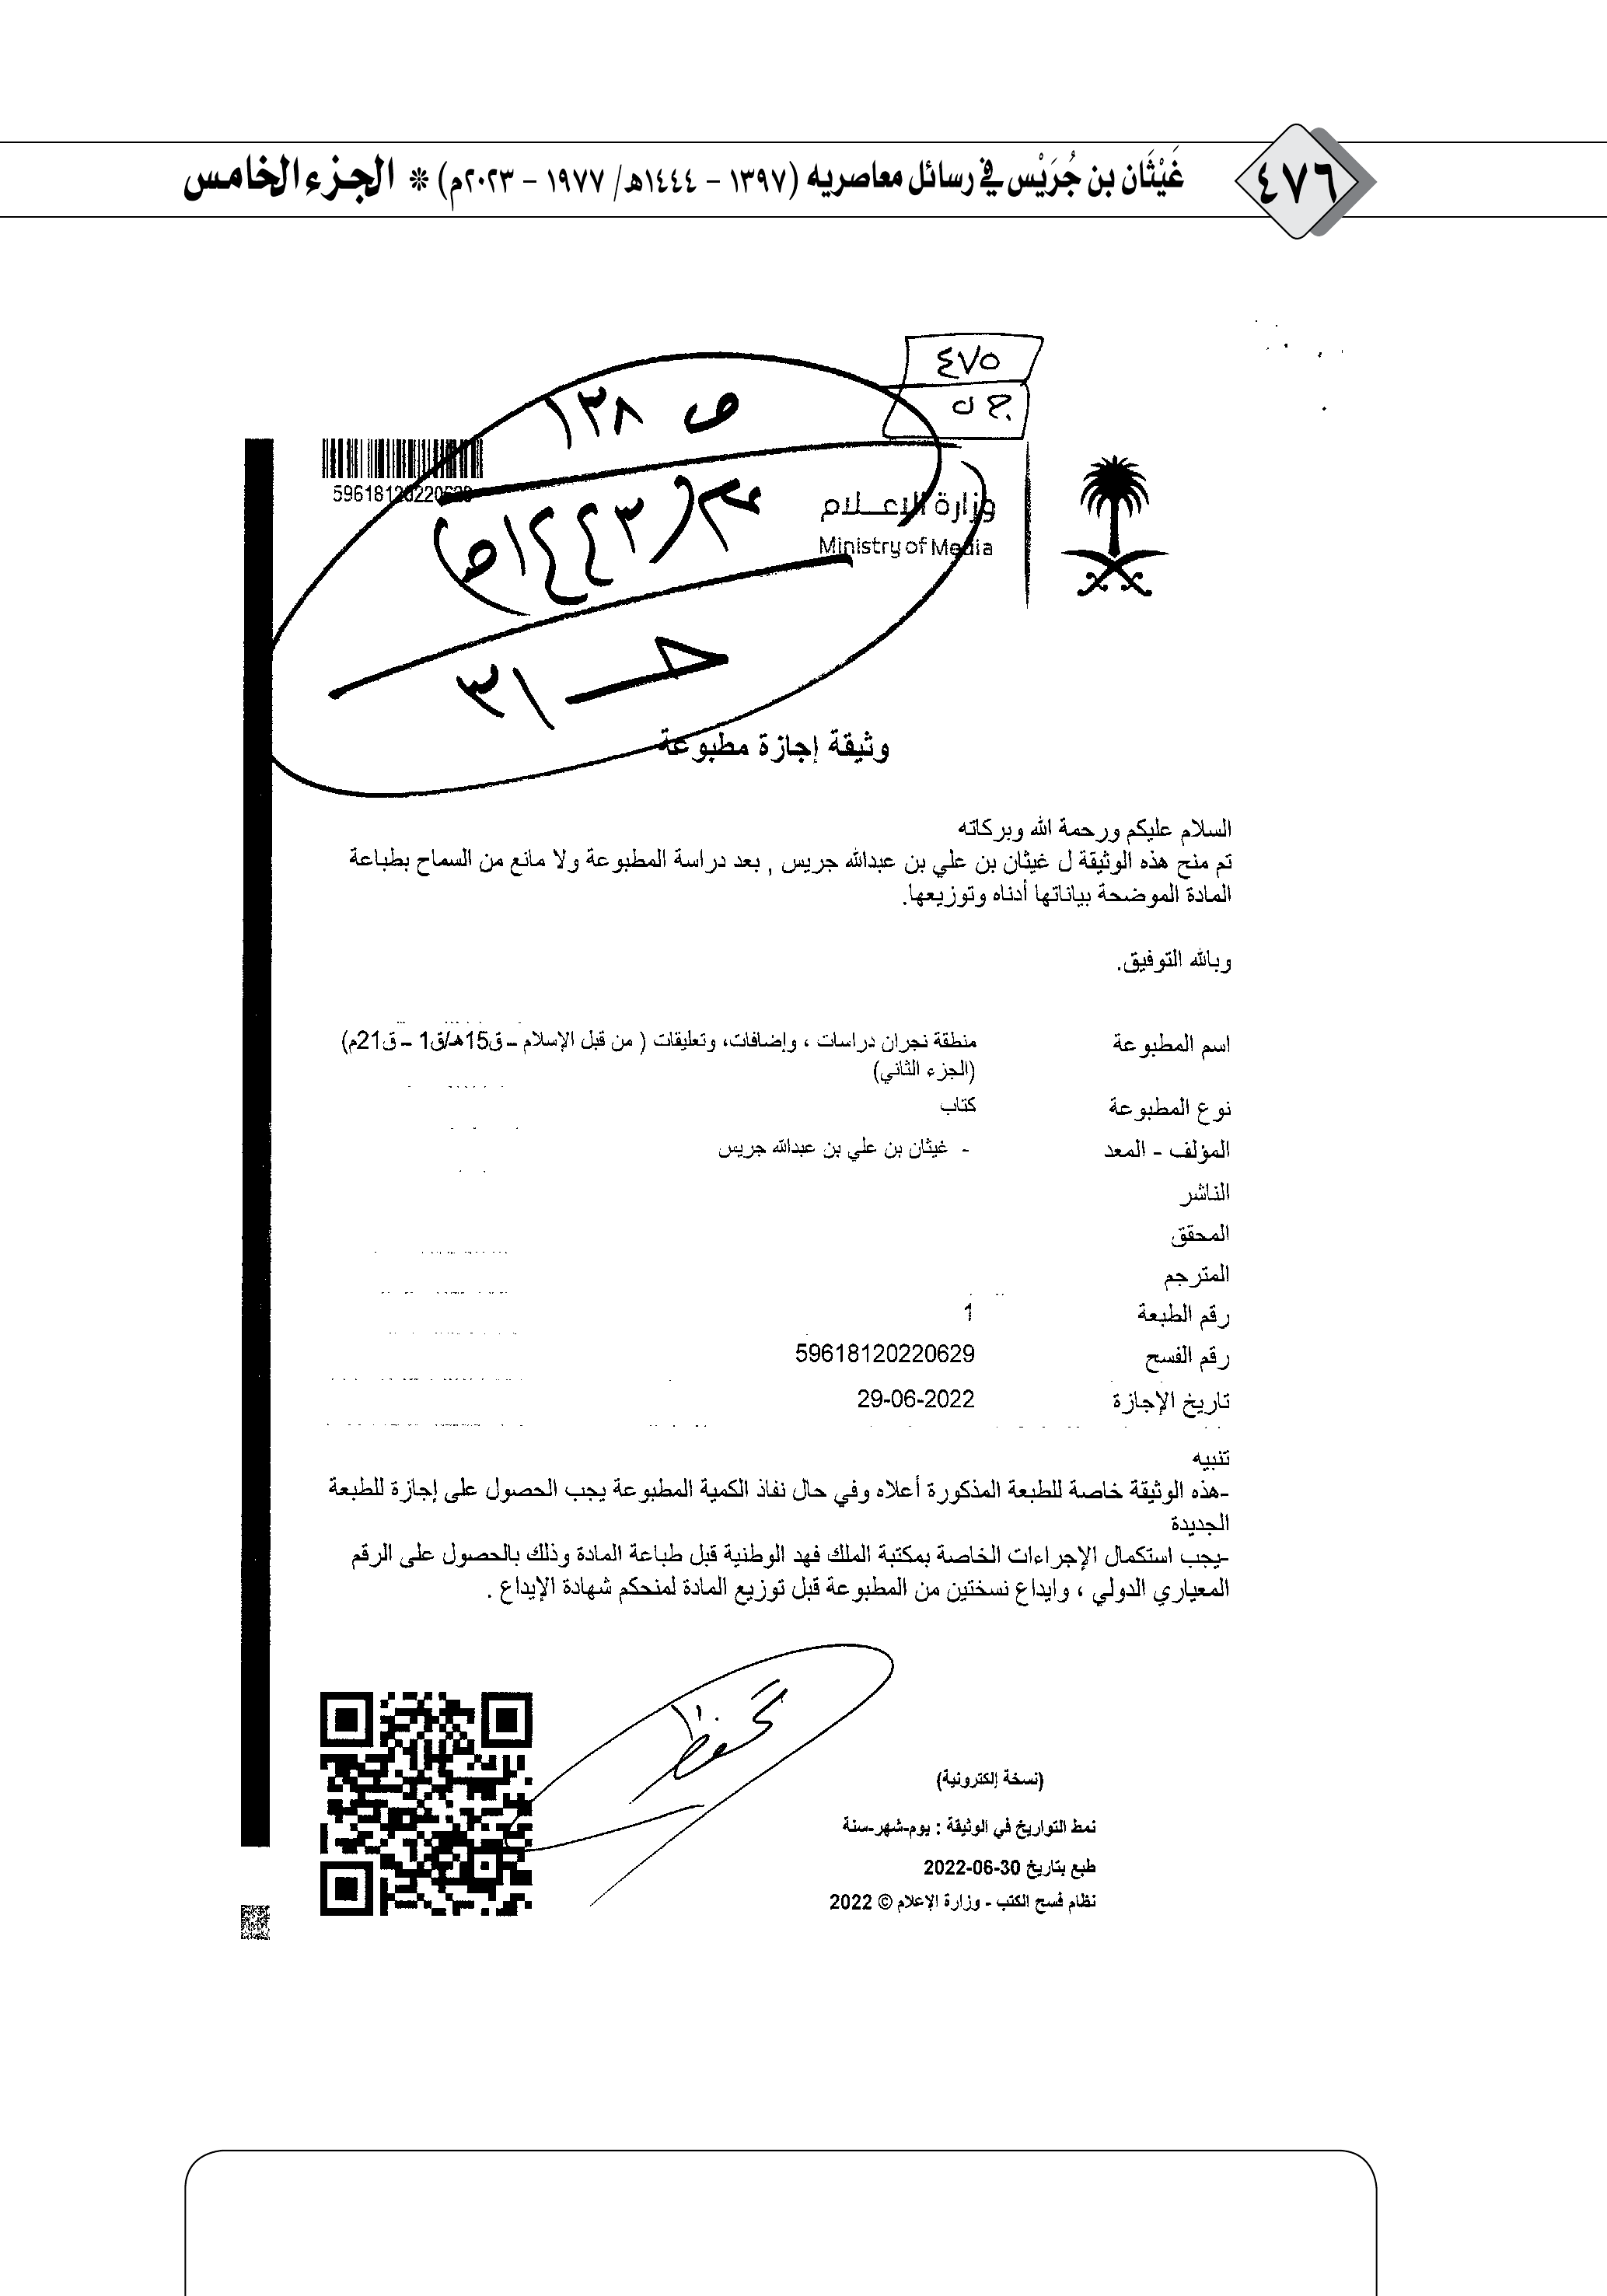 ٤٧٦
غَيْثَان بن جُرَيْس في رسائل معاصريه (١٣٩٧ – ١٤٤٤هـ/ ١٩٧٧ – ٢٠٢٣م) * الجزء الخامس
٤٧٥
ص ١٣٨
59618120220629
وزارة الإعلام
Ministry of Media
وثيقة إجازة مطبوعة
السلام عليكم ورحمة الله وبركاته
تم منح هذه الوثيقة ل غيثان بن علي بن عبدالله جريس , بعد دراسة المطبوعة ولا مانع من السماح بطباعة
المادة الموضحة بياناتها أدناه وتوزيعها.
وبالله التوفيق.
اسم المطبوعة منطقة نجران دراسات ، وإضافات، وتعليقات ( من قبل الإسلام – ق15هـ/ق1 – ق21م)
(الجزء الثاني)
نوع المطبوعة كتاب
المؤلف - المعد - غيثان بن علي بن عبدالله جريس
الناشر
المحقق
المترجم
رقم الطبعة 1
رقم الفسح 59618120220629
تاريخ الإجازة 29-06-2022
تنبيه
-هذه الوثيقة خاصة للطبعة المذكورة أعلاه وفي حال نفاذ الكمية المطبوعة يجب الحصول على إجازة للطبعة
الجديدة
-يجب استكمال الإجراءات الخاصة بمكتبة الملك فهد الوطنية قبل طباعة المادة وذلك بالحصول على الرقم
المعياري الدولي ، وايداع نسختين من المطبوعة قبل توزيع المادة لمنحكم شهادة الإيداع .
(نسخة إلكترونية)
نمط التواريخ في الوثيقة : يوم-شهر-سنة
طبع بتاريخ 30-06-2022
نظام فسح الكتب - وزارة الإعلام © 2022